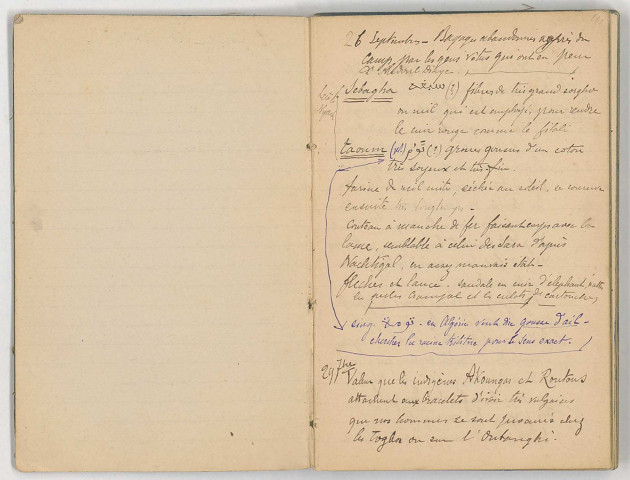 26 Septembre - Bagages abandonnés auprès du
camp, par les gens vêtus qui ont eu peur
Sebagha (?) fibres de très grand sorgho
ou mil qui est employé, pour rendre
le cuir rouge comme le filali
taoum (pl.) (?) grosses gousses d'un coton
très soyeux et très fin.
farine de mil cuite, séchée au soleil, se conserve
ensuite très longtemps -
Couteau à manche de fer faisant corps avec la
lame, semblable à celui des Sara d'après
Nachtigal, en assez mauvais état -
flèches et lance - sandale en cuir d'éléphant,
les perles Crampel et les culots de cartouches
sing. - en Algérie veut dire gousse d'ail -
chercher la racine trilitère pour le sens exact.
29 7bre
Valeur que les indigènes Akoungas et Routous
attachent aux bracelets d'ivoire très vulgaires
que nos hommes se sont procurés chez
les Togbo ou sur l'Oubanghi.